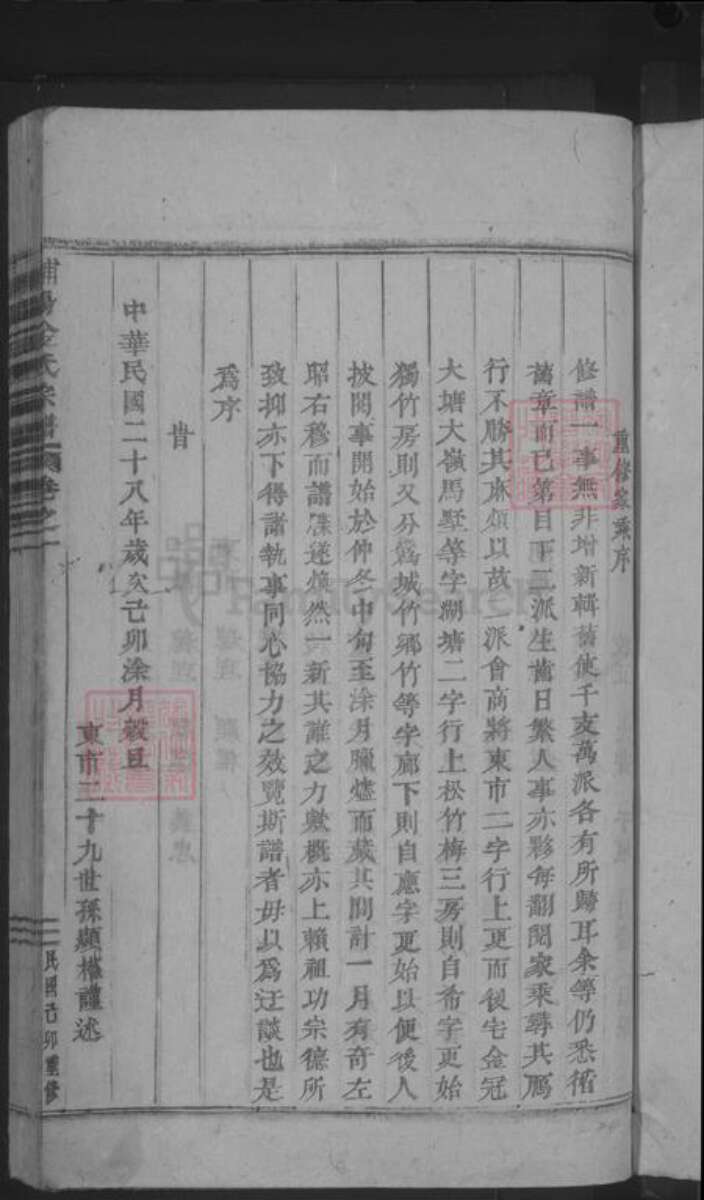 重修家乘序
修譜一事無非增新輯舊使千支萬派各有所歸耳余等仍悉循
舊章而已第目下二派生齒日繁人事亦夥每翻閱家乘尋其鴈
行不勝其麻煩以故二派會商將東市二字行上更而後宅金冠
大塘大嶺馬墅等字湖塘二字行上松竹梅三房則自希字更始
獨竹房則又分為城竹鄉竹等字廊下則自應字更始以便後人
披閱事開始於仲冬中旬至涂月臘盡而蕆其間計一月有奇左
昭右穆而譜牒遂煥然一新其誰之力歟概亦上賴祖功宗德所
致抑亦下得諸執事同心協力之效覽斯譜者毋以為迂談也是
為序
旹
中華民國二十八年歲次己卯涂月穀旦
東市三十九世孫顯謹述
浦陽金氏宗譜 卷之一
民國己卯重修